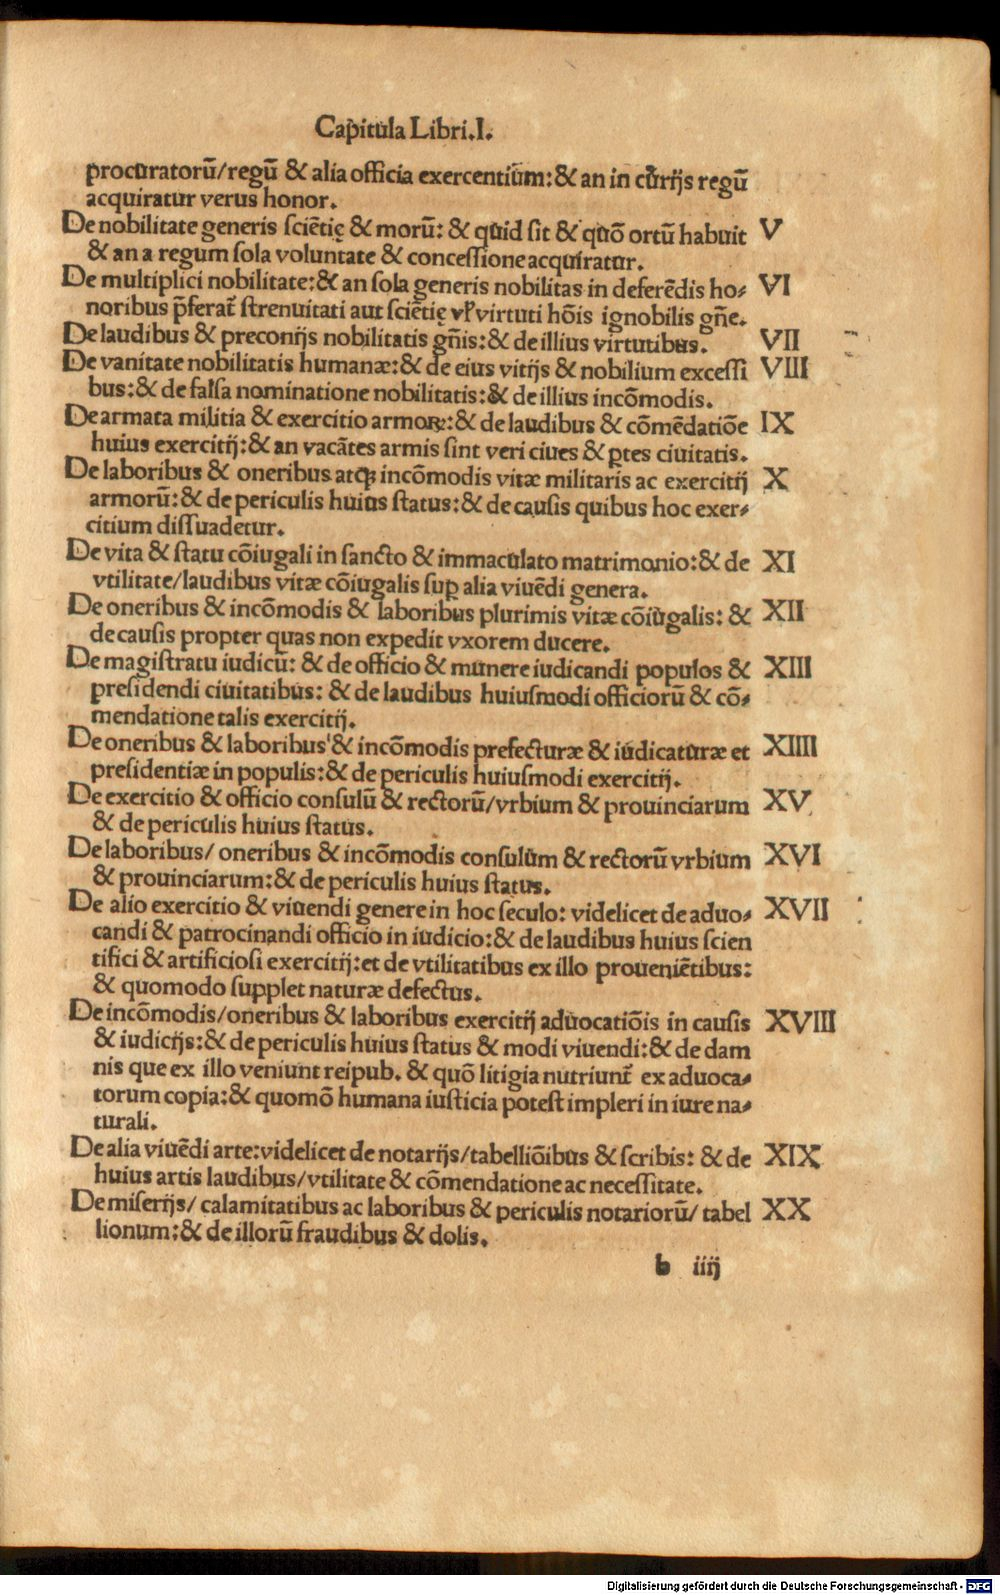 Capitula Libri.I.
procuratorū/regū & alia officia exercentiūm:& an in cūrijs regū
acquiratur verus honor.
De nobilitate generis sciētię & morū: & quid sit & quō ortū habuit V
& an a regum sola voluntate & concessione acquiratur.
De multiplici nobilitate:& an sola generis nobilitas in deferēdis ho⸗ VI
noribus p̄ferat᷑ strenuitati aut sciētię vł virtuti hōis ignobilis gn̄e.
De laudibus & preconijs nobilitatis gn̄is:& de illius virtutibus. VII
De vanitate nobilitatis humanæ:& de eius vitijs & nobilium excessi VIII
bus:& de falsa nominatione nobilitatis:& de illius incōmodis.
De armata militia & exercitio armoꝝ:& de laudibus & cōmēdatiōe IX
huius exercitij:& an vacātes armis sint veri ciues & ꝑtes ciuitatis.
De laboribus & oneribus atqꝫ incōmodis vitæ militaris ac exercitij X
armorū:& de periculis huius status:& de causis quibus hoc exer⸗
citium dissuadetur.
De vita & statu cōiugali in sancto & immaculato matrimonio:& de XI
vtilitate/laudibus vitæ cōiugalis suꝑ alia viuēdi genera.
De oneribus & incōmodis & laboribus plurimis vitæ cōiugalis: & XII
de causis propter quas non expedit vxorem ducere.
De magistratu iudicū: & de officio & munere iudicandi populos & XIII
presidendi ciuitatibus: & de laudibus huiusmodi officiorū & cō⸗
mendatione talis exercitij.
De oneribus & laboribus & incōmodis prefecturæ & iudicaturæ et XIIII
presidentiæ in populis:& de periculis huiusmodi exercitij.
De exercitio & officio consulū & rectorū/vrbium & prouinciarum XV
& de periculis huius status.
De laboribus/ oneribus & incōmodis consulum & rectorū vrbium XVI
& prouinciarum:& de periculis huius status.
De alio exercitio & viuendi genere in hoc seculo: videlicet de aduo⸗ XVII
candi & patrocinandi officio in iudicio:& de laudibus huius scien
tifici & artificiosi exercitij:et de vtilitatibus ex illo proueniētibus:
& quomodo supplet naturæ defectus.
De incōmodis/oneribus & laboribus exercitij aduocatiōis in causis XVIII
& iudicijs:& de periculis huius status & modi viuendi:& de dam
nis que ex illo veniunt reipub. & quō litigia nutriunt᷑ ex aduoca⸗
torum copia:& quomō humana iusticia potest impleri in iure na⸗
turali.
De alia viuēdi arte:videlicet de notarijs/tabelliōibus & scribis: & de XIX
huius artis laudibus/vtilitate & cōmendatione ac necessitate.
De miserijs/ calamitatibus ac laboribus & periculis notariorū/ tabel XX
lionum:& de illorū fraudibus & dolis.
b iiij
Digitalisierung gefördert durch die Deutsche Forschungsgemeinschaft - DFG